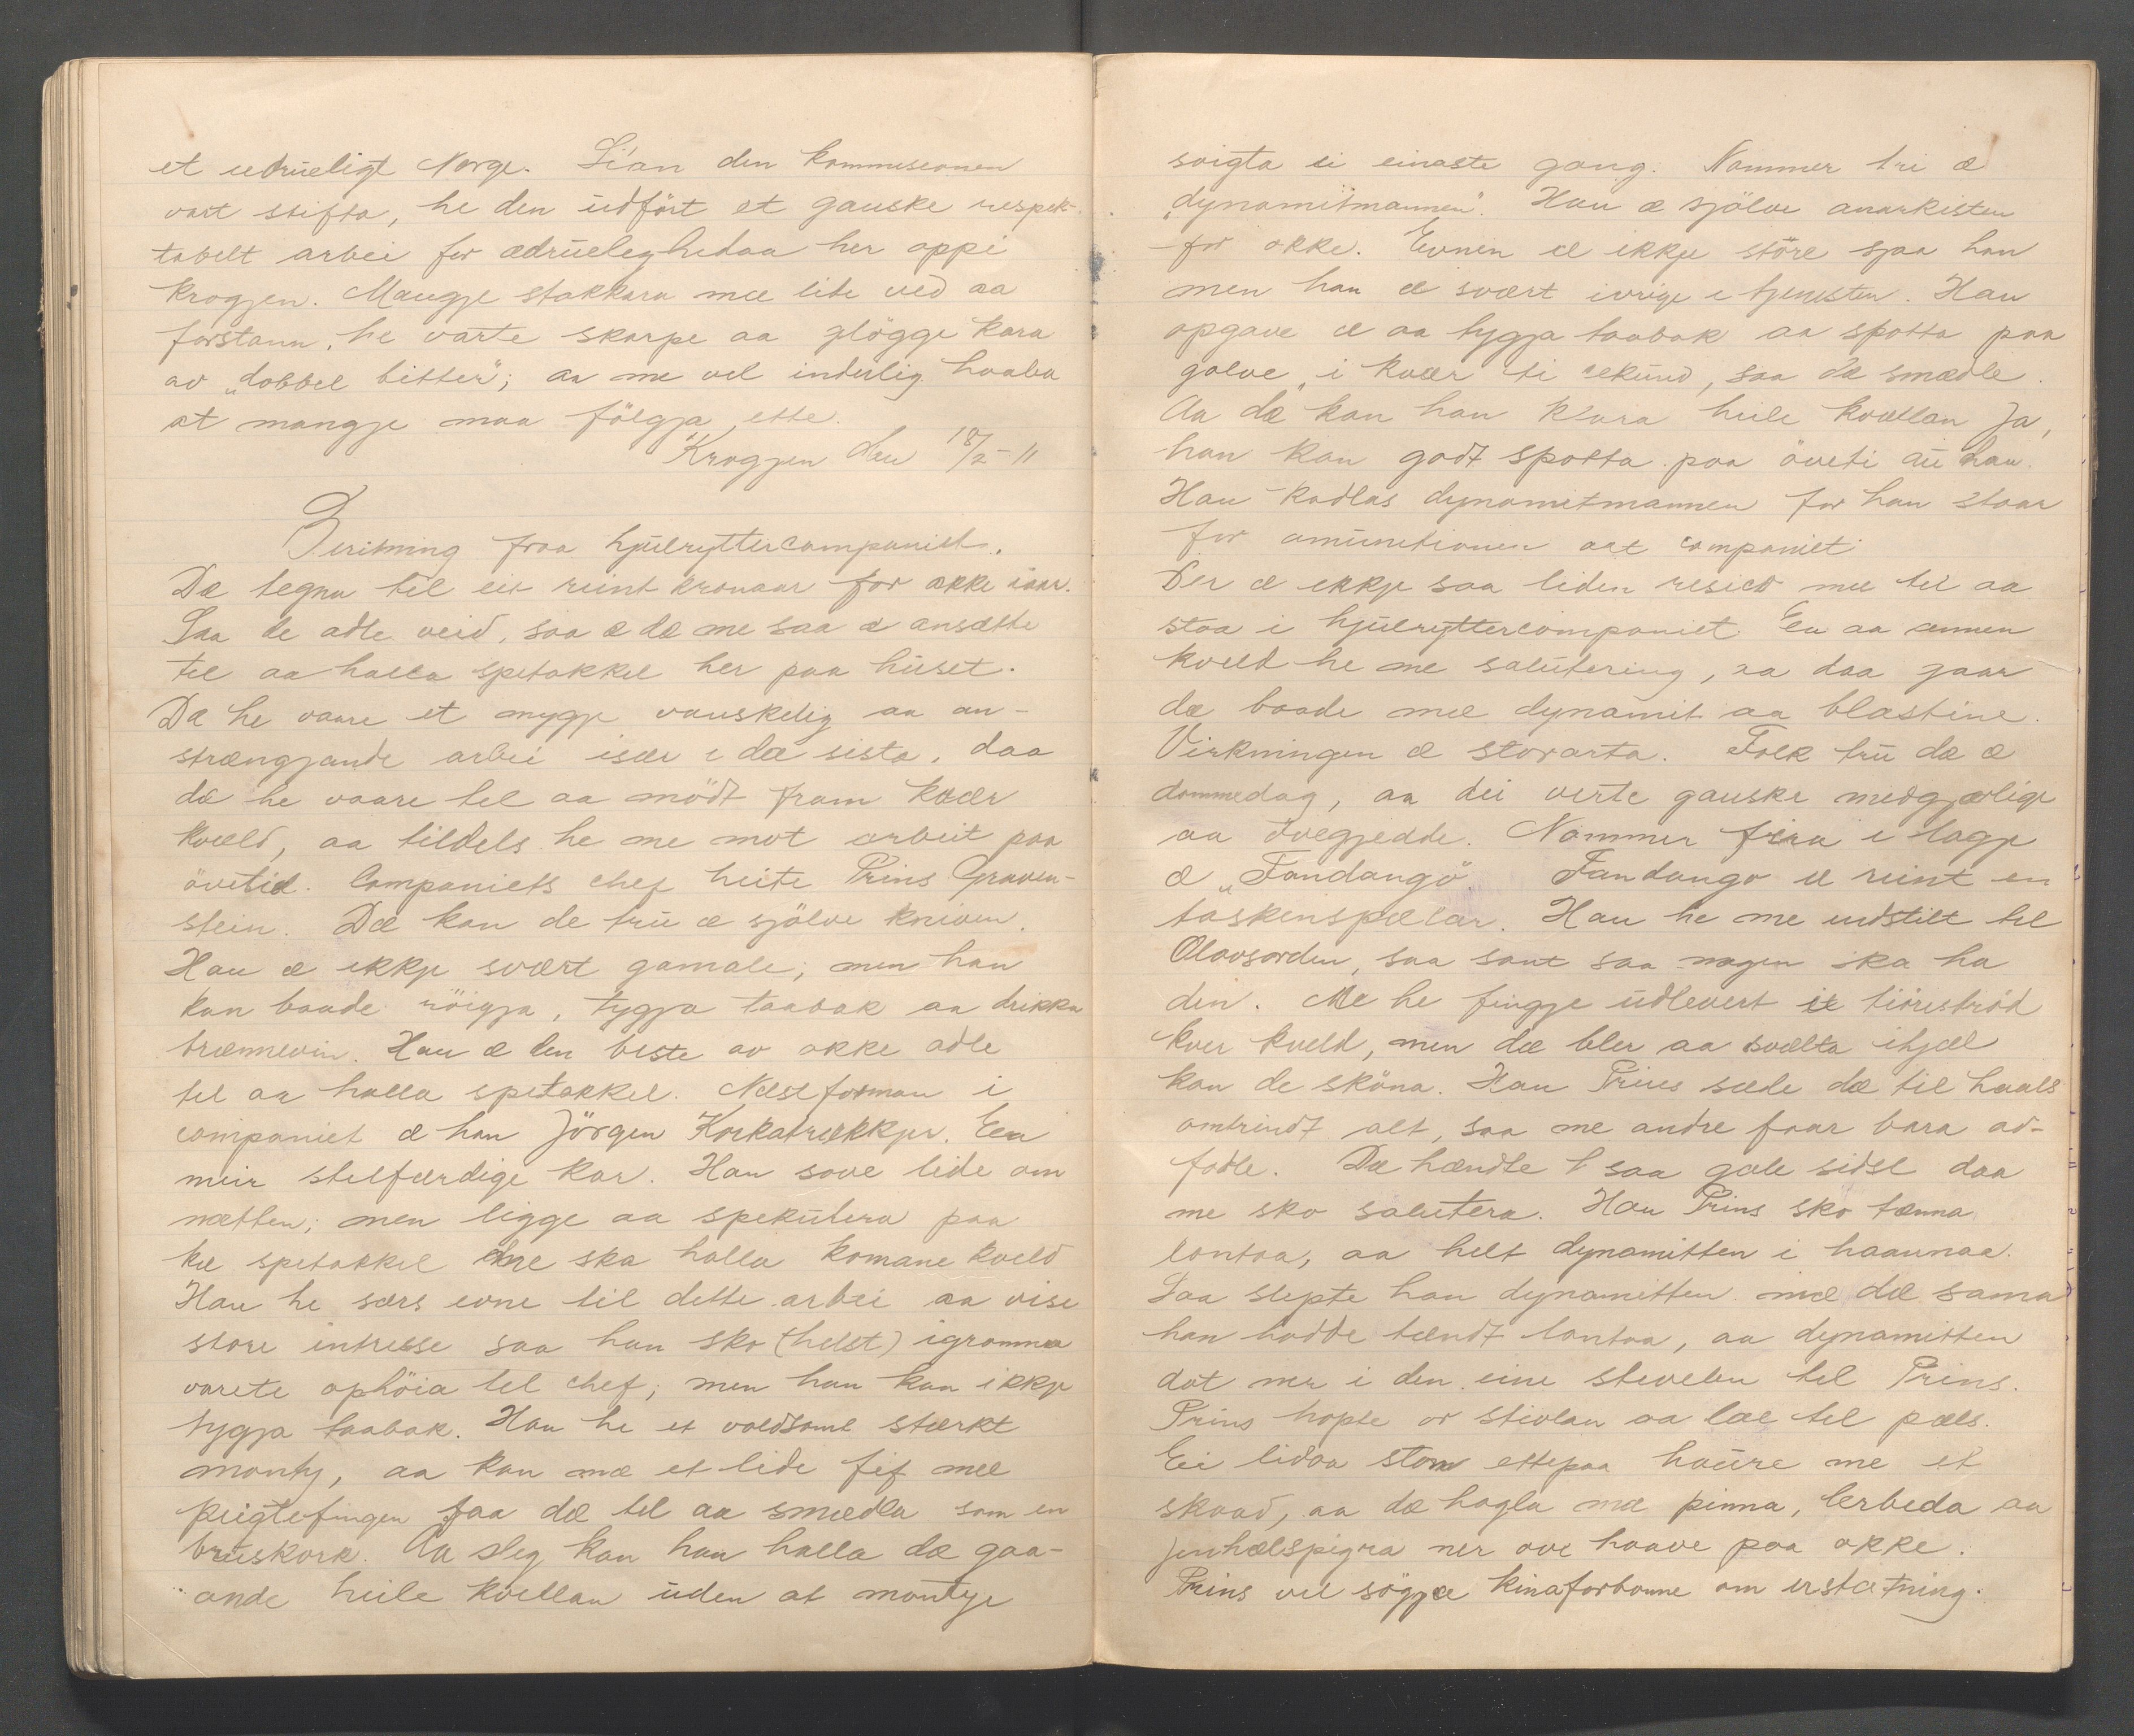 et ædrueligt Norge. Si'an den kommisionen
vart stifta, he den udfört et ganske respek-
tabelt arbei for ædrueleghedaa her oppi
Krogjen. Mangje stakkara mæ lite ved aa
forstann, he varte skarpe aa glögge kara
av „dobbel bitter"; aa me vel inderlig haaba
at mangje maa fölgja ette.
Krogjen den 18/2-11
Beritning fraa hjulryttercompaniet.
Dæ tegna til eit reint kronaar for okke iaar.
Saa de adle veid, saa æ dæ me saa æ ansætte
tel aa halla spetakkel her paa huset.
Dæ he vaare et mygje vanskelig aa an-
strængjande arbei især i dæ sista, daa
dæ he vaare tel aa mödt fram kvær
kvæld, aa tildels he me mot arbeit paa
övetid. Companiets chef heite Prins Graven-
stein. Dæ kan de tru æ sjölve kniven.
Han æ ikkje svært gamale; men han
kan baade röigja, tygja taabak aa drikka
brænnevin. Han æ den beste av okke adle
tel aa halla spetakkel. Næstforman i
companiet æ han Jörgen Korkatrækkjer. Ein
meir stelfærdige kar. Han sove lide om
nætten; men ligge aa spekulera paa
ke spetakkel me ska halla komane kveld
Han he særs evne til dette arbei aa vise
store intresse saa han sko (helst) igromma
varete ophöia tel chef; men han kan ikkje
tygja taabak. Han he et voldsomt stærkt
monty, aa kan mæ et lide fif mæ
peigtefingen faa dæ tel aa smædla som en
bruskork. Aa sleg kan han halla dæ gaa-
ande heile kvellan uden at montye
svigta ei einaste gong. Nommer tri æ
„dynamitmannen". Han æ sjölve anarkisten
for okke. Evnen æ ikkje störe sjaa han
men han æ svært ivrige i tjenesten. Han
opgave æ aa tygja taabak aa spotta paa
golve, i kvær ti sekund, saa dæ smædle.
Aa dæ kan han klara heile kvællan Ja,
han kan godt spotta paa öveti au han.
Han kadlas dynamitmannen for han staar
for amunitionen aat companiet
Der æ ikkje saa liden resico mæ tel aa
staa i hjulryttercompaniet. En aa annen
kveld he me salutering, aa daa gaar
dæ baade mæ dynamit aa blastine.
Virkningen æ storarta. Folk tru dæ æ
dommedag, aa dei verte ganske medgjærlige
aa övegjedde. Nommer fira i lagje
æ „Fandango". Fandango æ reint en
taskenspælar. Han he me indstilt tel
Olavsorden, saa sant saa nogen ska ha
den. Me he fingje udlevert ie tiöreströd
kver kveld, men dæ bler aa svælta ihjæl
kan de sköna. Han Prins sæde dæ til haals
omtrindt alt, saa me andre faar bara ad-
fadle. Dæ hændte saa gale sidst daa
me sko salutera. Han Prins sko tænna
lontaa, aa helt dynamitten i haannaa.
Saa slepte han dynamitten mæ dæ sama
han hadde tændt lontaa, aa dynamitten
dat ner i den eine stevelen tel Prins.
Prins hopte or stivlan aa læe tel pæls.
Ei lidaa ston ettepaa haure me et
skaad, aa dæ hagla mæ pinna, lerbeda aa
jenhælspigra ner ove haave paa okke.
Prins vel sögja kinaforbonne om erstatning.